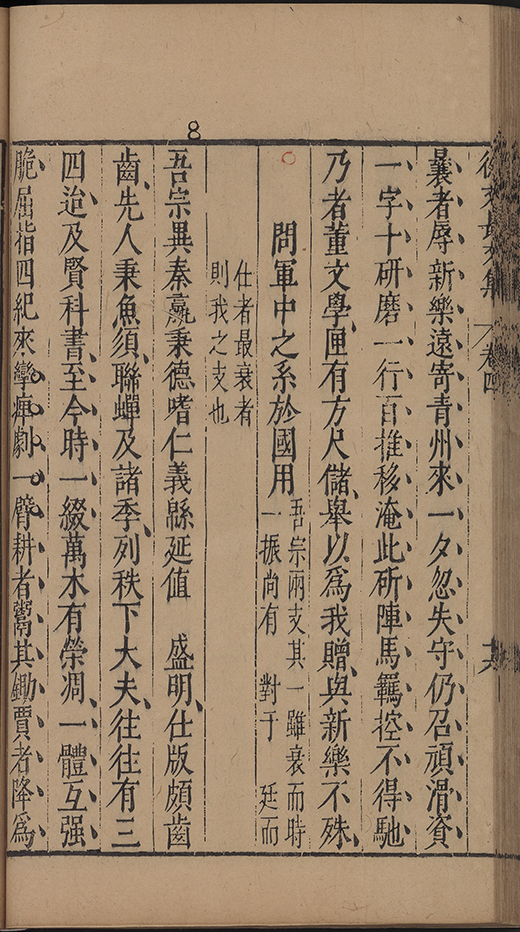 8
徐文長文集 卷四
曩者辱新樂遠寄青州來一夕忽失守仍召頑滑資
一字十研磨一行百推移淹此斫陣馬羈控不得馳
乃者董文學匣有方尺儲舉以爲我贈與新樂不殊
問軍中之系於國用
吾宗兩支其一雖衰而時
一振尚有 對于 廷而
仕者最衰者
則我之支也
吾宗異秦嬴秉德嗜仁義緜延值 盛明仕版頗齒
齒先人秉魚須聯蟬及諸季列秩下大夫往往有三
四迨及賢科書至今時一綴萬木有榮凋一體互强
脆屈指四紀來孿痺劇一臂耕者鬻其鋤賈者降爲